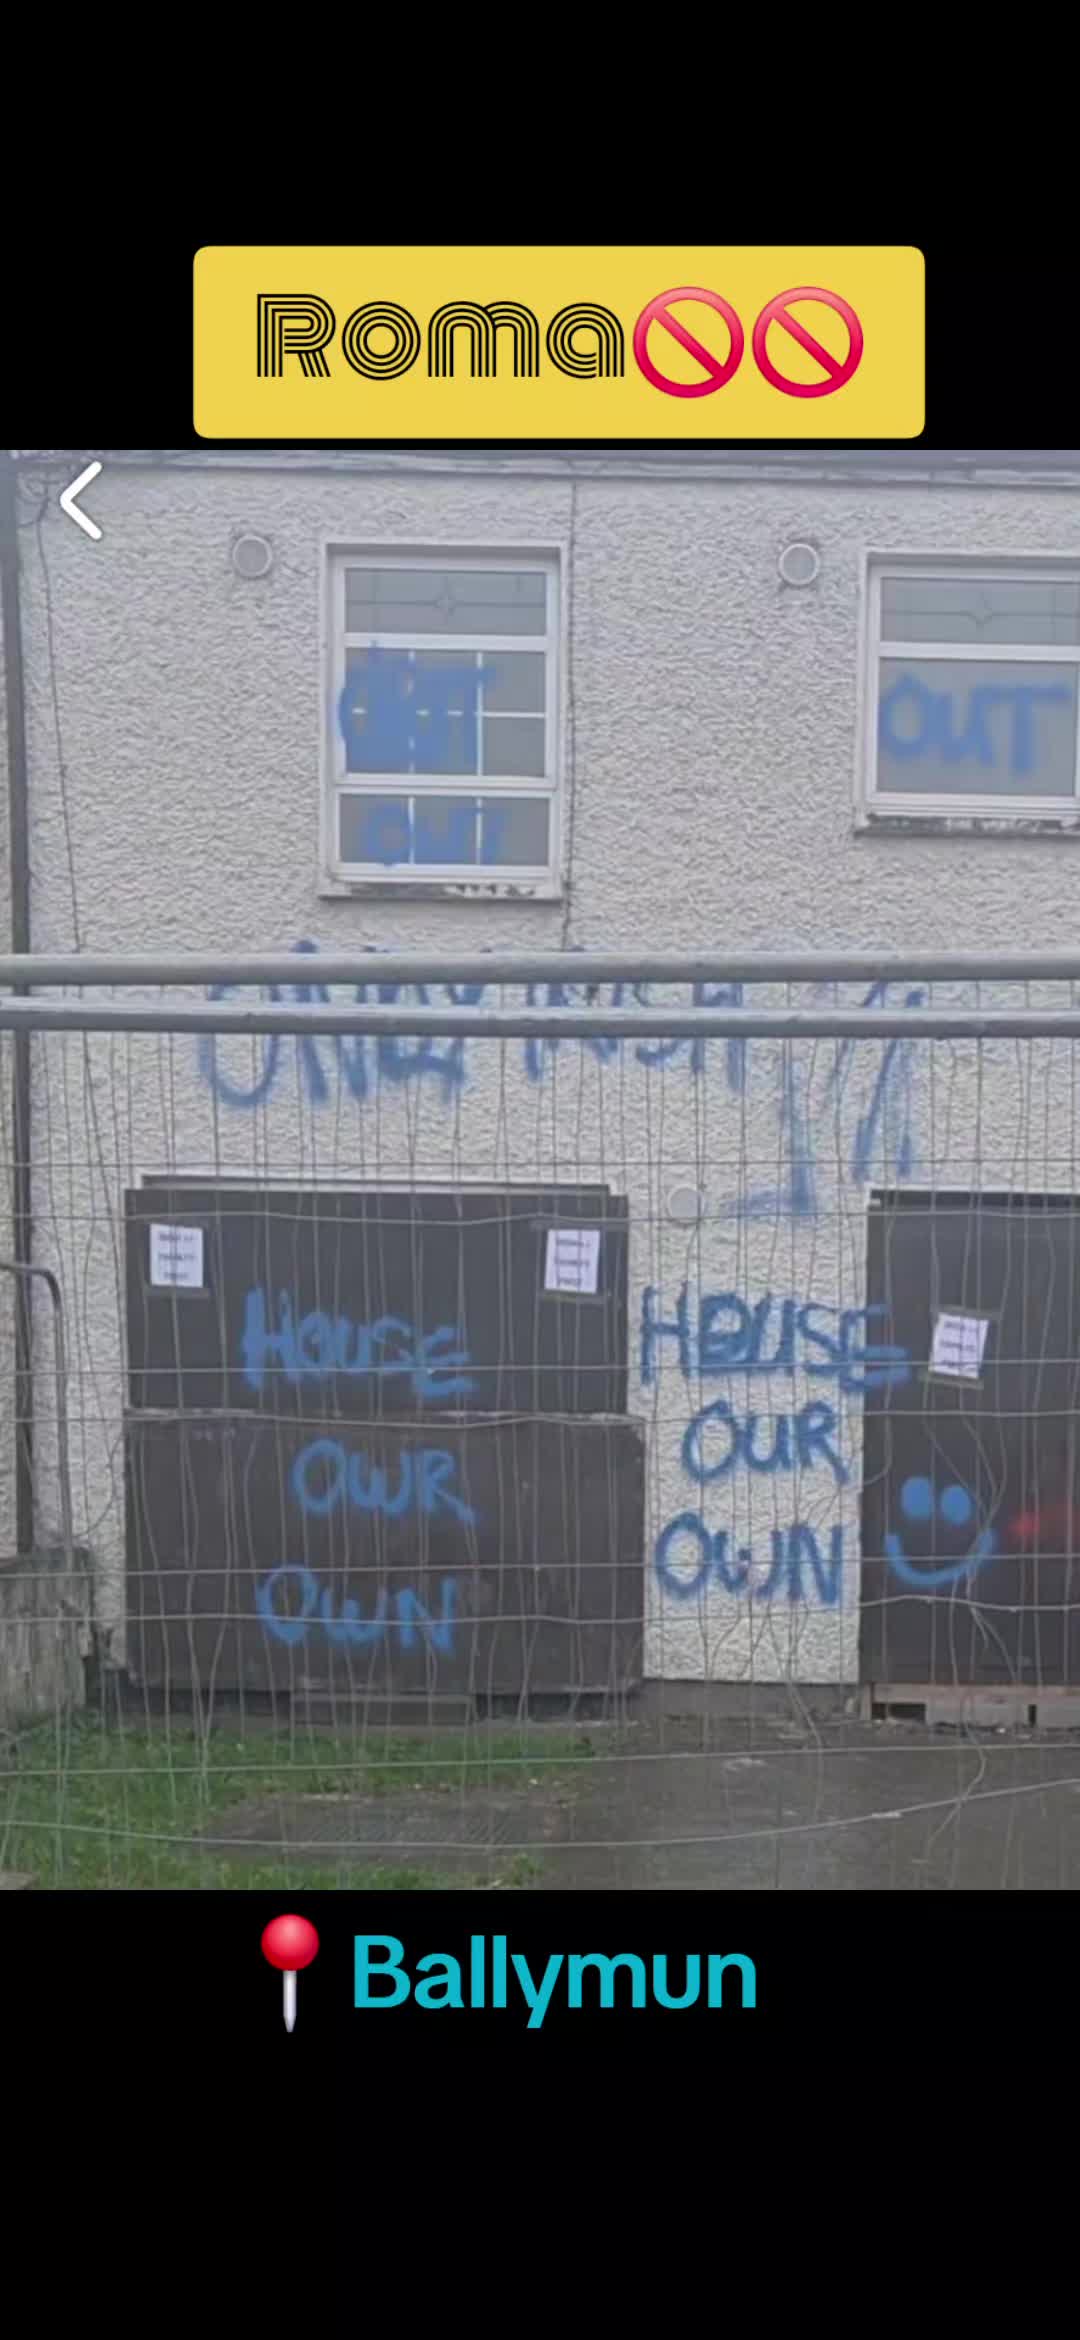 Roma🚫🚫
OUT
OUT
OUT
ONLY IRISH
HOUSE
OWR
OWN
HOUSE
OUR
OWN
📍 Ballymun